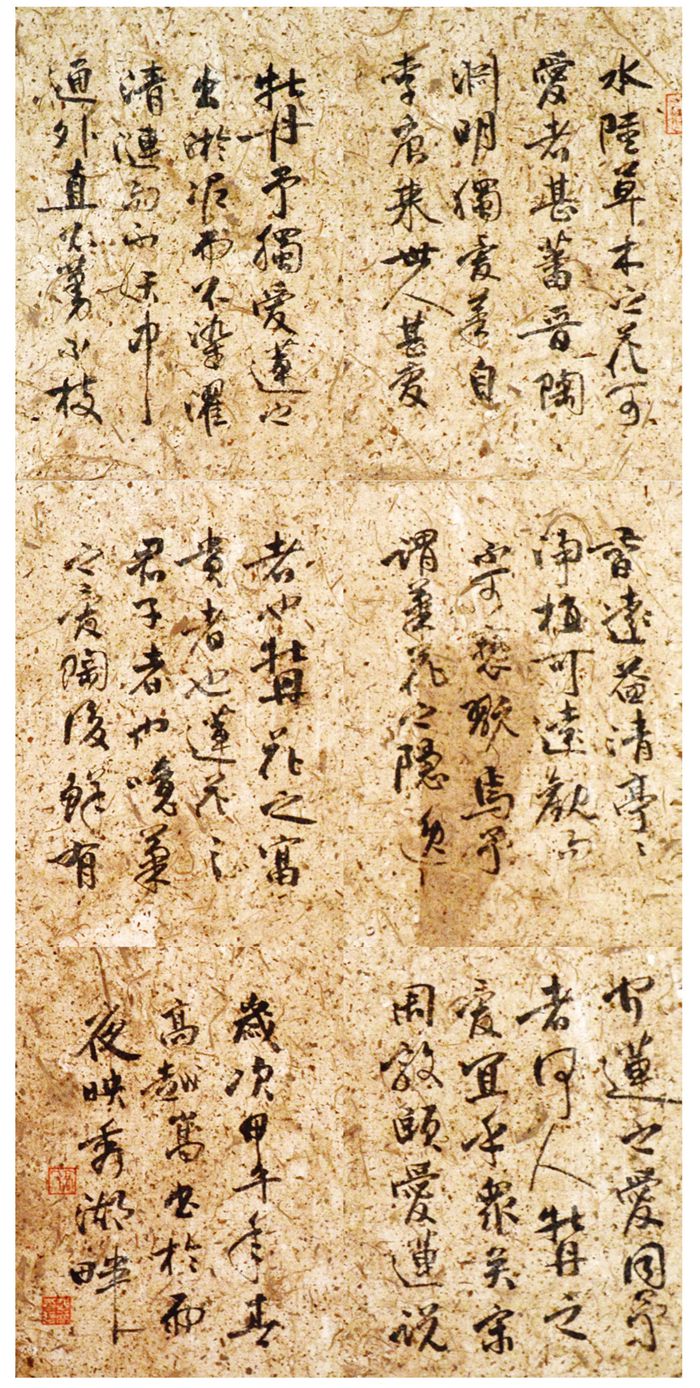 水陸草木之花可
愛者甚蕃晉陶
淵明獨愛菊自
李唐來世人甚愛
牡丹予獨愛蓮之
出淤泥而不染濯
清漣而不妖中
通外直不蔓不枝
香遠益清亭〻
淨植可遠觀而
不可褻翫焉予
謂菊花之隱逸
者也牡丹花之富
貴者也蓮花之
君子者也噫菊
之愛陶後鮮有
聞蓮之愛同予
者何人牡丹之
愛宜乎衆矣宋
周敦頤愛蓮説
歲次甲午年春
高越嵩書於雨
夜映秀湖畔